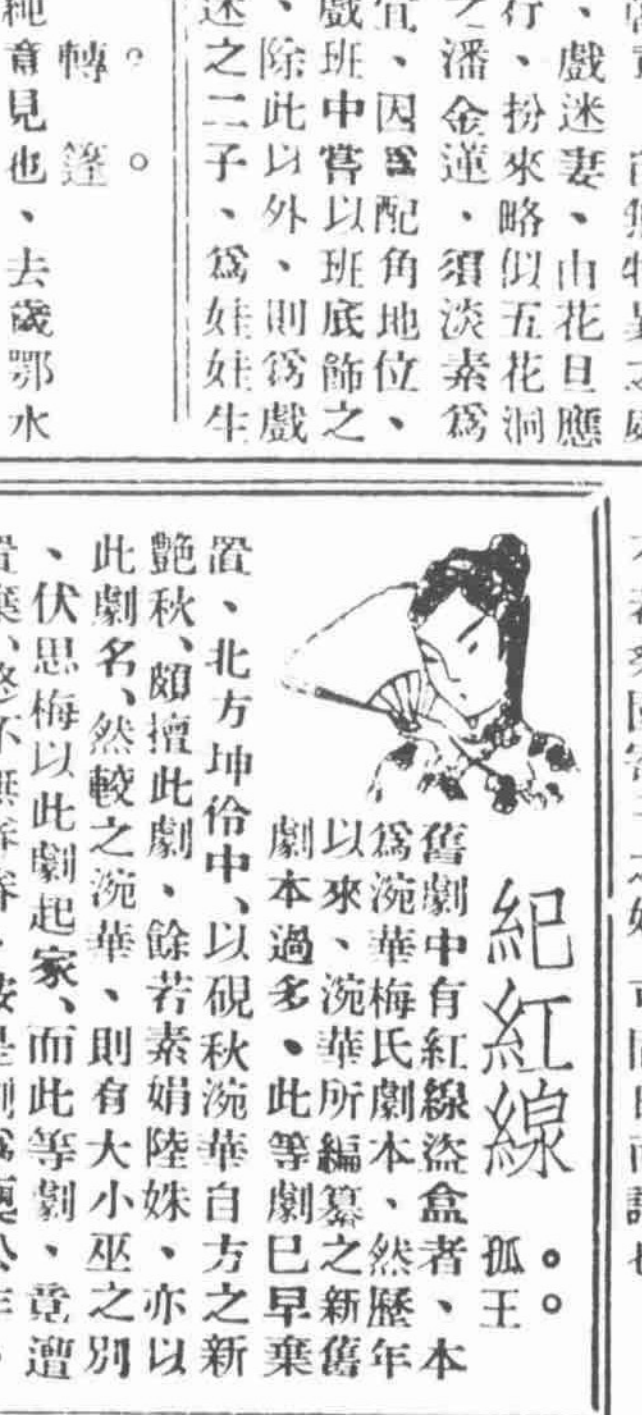 戲迷妻、由花旦應
行、扮來略似五花洞
之潘金蓮、須淡素爲
宜、因爲配角地位、
戲班中嘗以班底飾之
、除此以外、則爲戲
迷之二子、爲娃娃生
。轉篷。
意見也、去歲鄂水
紀紅線
。孤王。
舊劇中有紅線盜盒者、本
爲浣華梅氏劇本、然歷年
以來、浣華所編纂之新舊
劇本過多、此等劇巳早棄
置、北方坤伶中、以硯秋浣華自方之新
艷秋、頗擅此劇、餘若素娟陸姝、亦以
此劇名、然較之浣華、則有大小巫之別
、伏思梅以此劇起家、而此等劇、竟遭